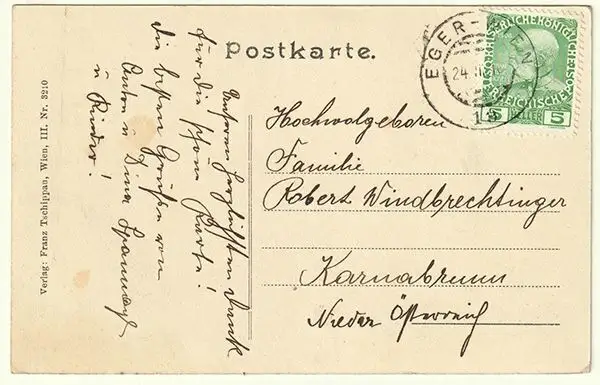 Postkarte.
EGER-WIEN
24
K.K.ÖSTERREICHISCHE POST
5 HELLER 5
Hochwolgeboren
Familie
Robert Windbrechtinger
Karnabrunn
Nieder Österreich
Unseren herzlichsten Dank
für die schöne Karte!
die besten Grüße von
Anton u. Dina
u Kinder!
Verlag: Franz Tschippan, Wien, III. Nr. 3210